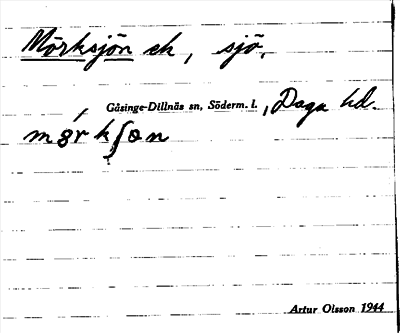 Mörksjön ek, sjö,
Gåsinge-Dillnäs sn, Söderm. l., Daga hd.
Artur Olsson 1944